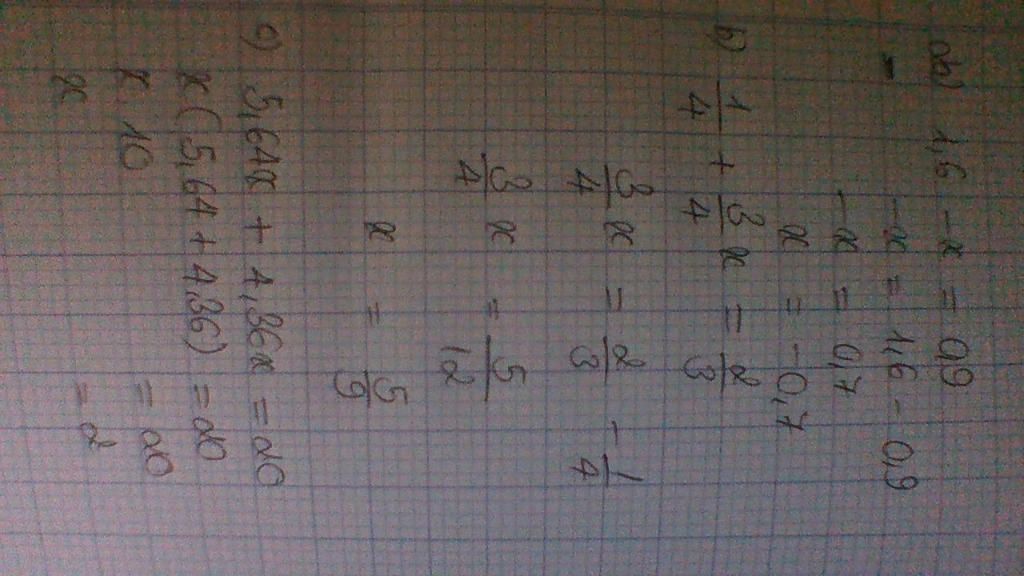 а) 1,6 - x = 0,9
- x = 1,6 - 0,9
- x = 0,7
x = - 0,7
б) 1/4 + 3/4 x = 2/3
3/4 x = 2/3 - 1/4
3/4 x = 5/12
x = 5/9
5,64x + 4,36x = 20
x (5,64 + 4,36) = 20
x 10 = 20
x = 2